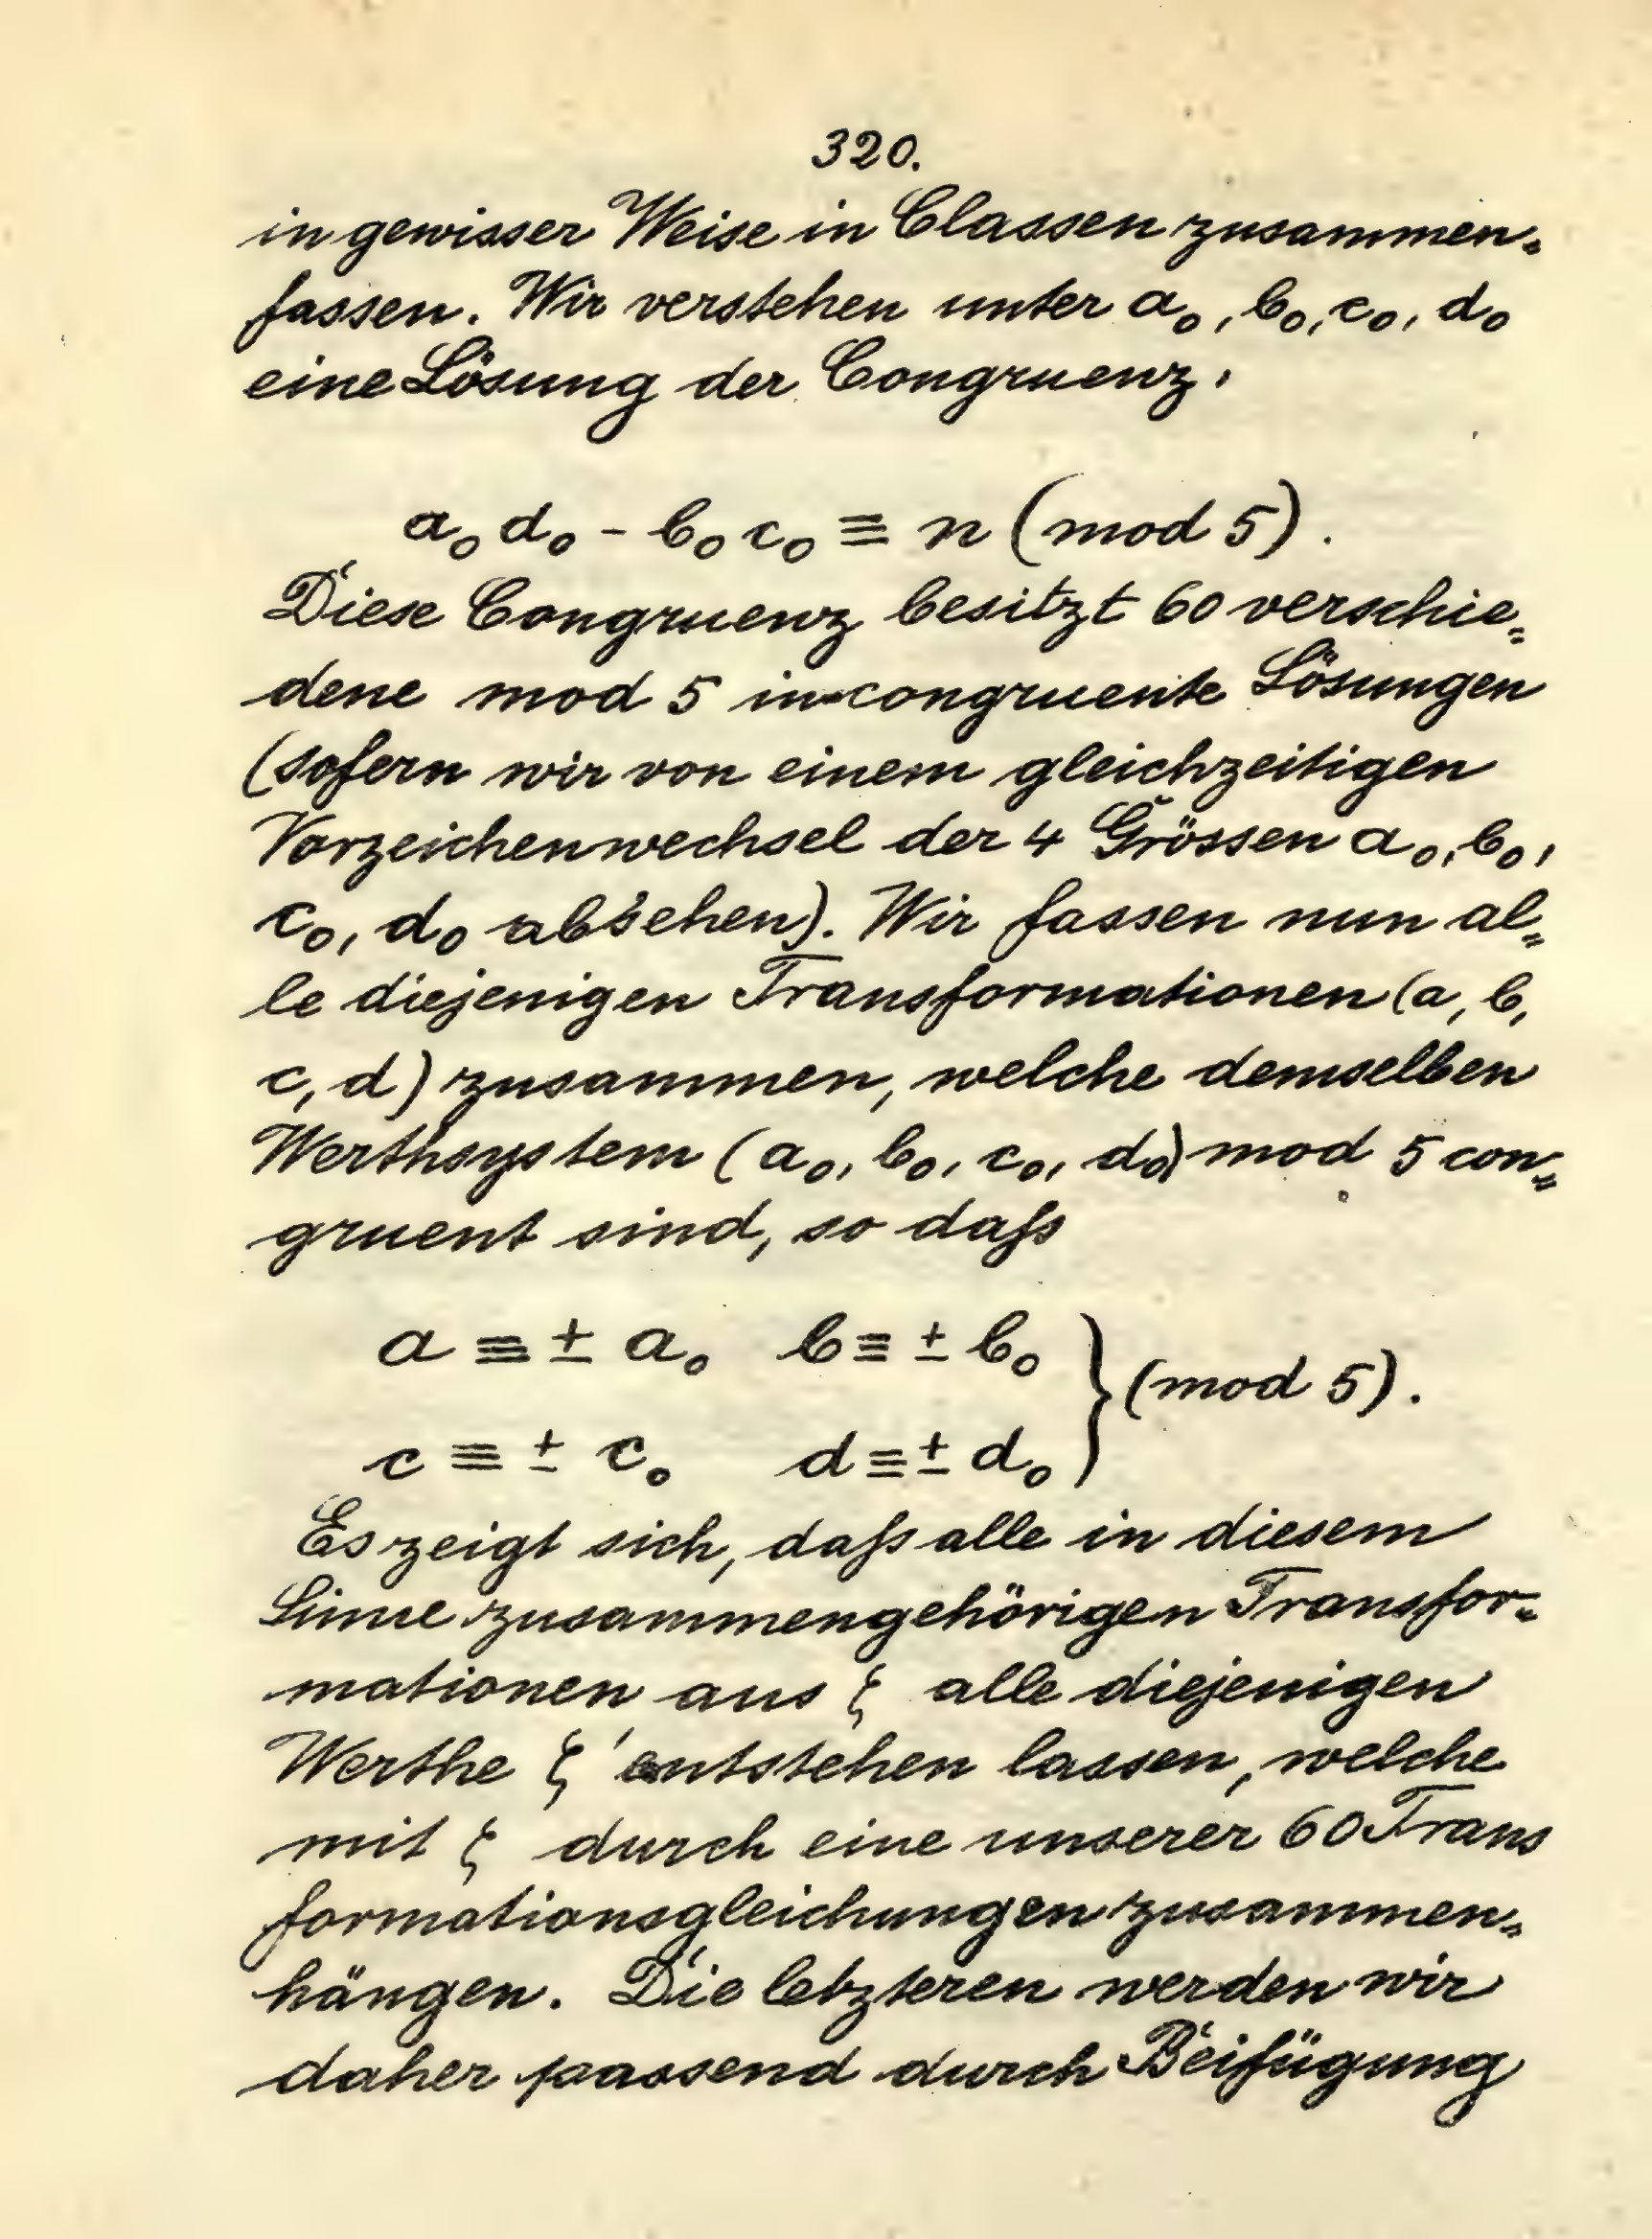 320.
in gewisser Weise in Classen zusammen-
fassen. Wir verstehen unter a₀, b₀, c₀, d₀
eine Lösung der Congruenz,
a₀ d₀ - b₀ c₀ ≡ n (mod 5).
Diese Congruenz besitzt 60 verschie-
dene mod 5 incongruente Lösungen
(sofern wir von einem gleichzeitigen
Vorzeichenwechsel der 4 Grössen a₀, b₀,
c₀, d₀ absehen). Wir fassen nun al-
le diejenigen Transformationen (a, b,
c, d) zusammen, welche demselben
Werthsystem (a₀, b₀, c₀, d₀) mod 5 con-
gruent sind, so daß
a ≡ ± a₀ b ≡ ± b₀
c ≡ ± c₀ d ≡ ± d₀ } (mod 5).
Es zeigt sich, daß alle in diesem
Sinne zusammengehörigen Transfor-
mationen aus ζ alle diejenigen
Werthe ζ' entstehen lassen, welche
mit ζ durch eine unserer 60 Trans
formationsgleichungen zusammen-
hängen. Die letzteren werden wir
daher passend durch Beifügung